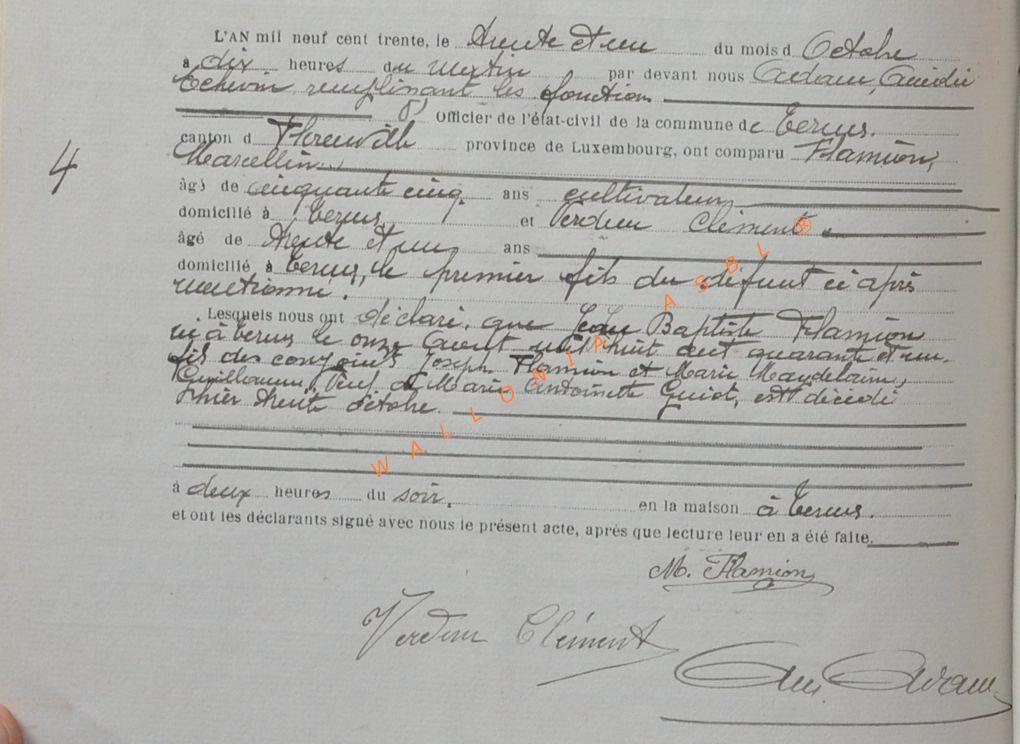 L'AN mil neuf cent trente, le trente et un du mois d Octobre
à dix heures du matin par devant nous Adam, Amédée
Echevin remplissant les fonctions
d' Officier de l'état-civil de la commune de Termes.
4
canton d Florenville province de Luxembourg, ont comparu Flamion,
Marcellin
âgé de cinquante cinq ans cultivateur,
domicilié à Termes, et Verdun Clément
âgé de trente et un ans
domicilié à Termes, le premier fils du défunt ci après
mentionné.
Lesquels nous ont déclaré que Jean Baptiste Flamion
né à Termes le onze août mil huit cent quarante et un
fils des conjoints Joseph Flamion et Marie Magdelaine,
Guillaume, veuf de Marie Antoinette Guiot, est décédé
hier trente octobre.
à deux heures du soir. en la maison à Termes.
et ont les déclarants signé avec nous le présent acte, après que lecture leur en a été faite.
M. Flamion
Verdun Clément
Am Adam
WALLONIA ASBL